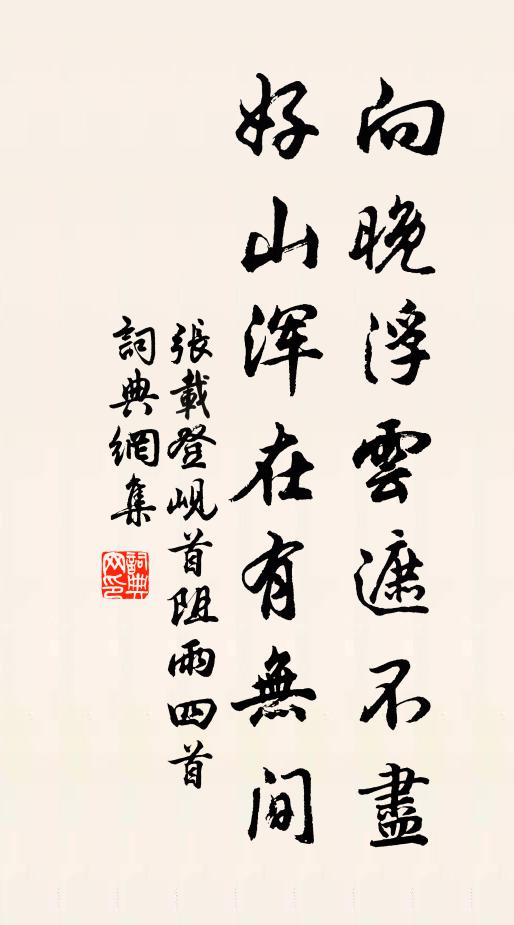 向晚浮雲遮不盡
好山渾在有無間
張載登峴首阻雨四首
詞典網集
詞典
网印